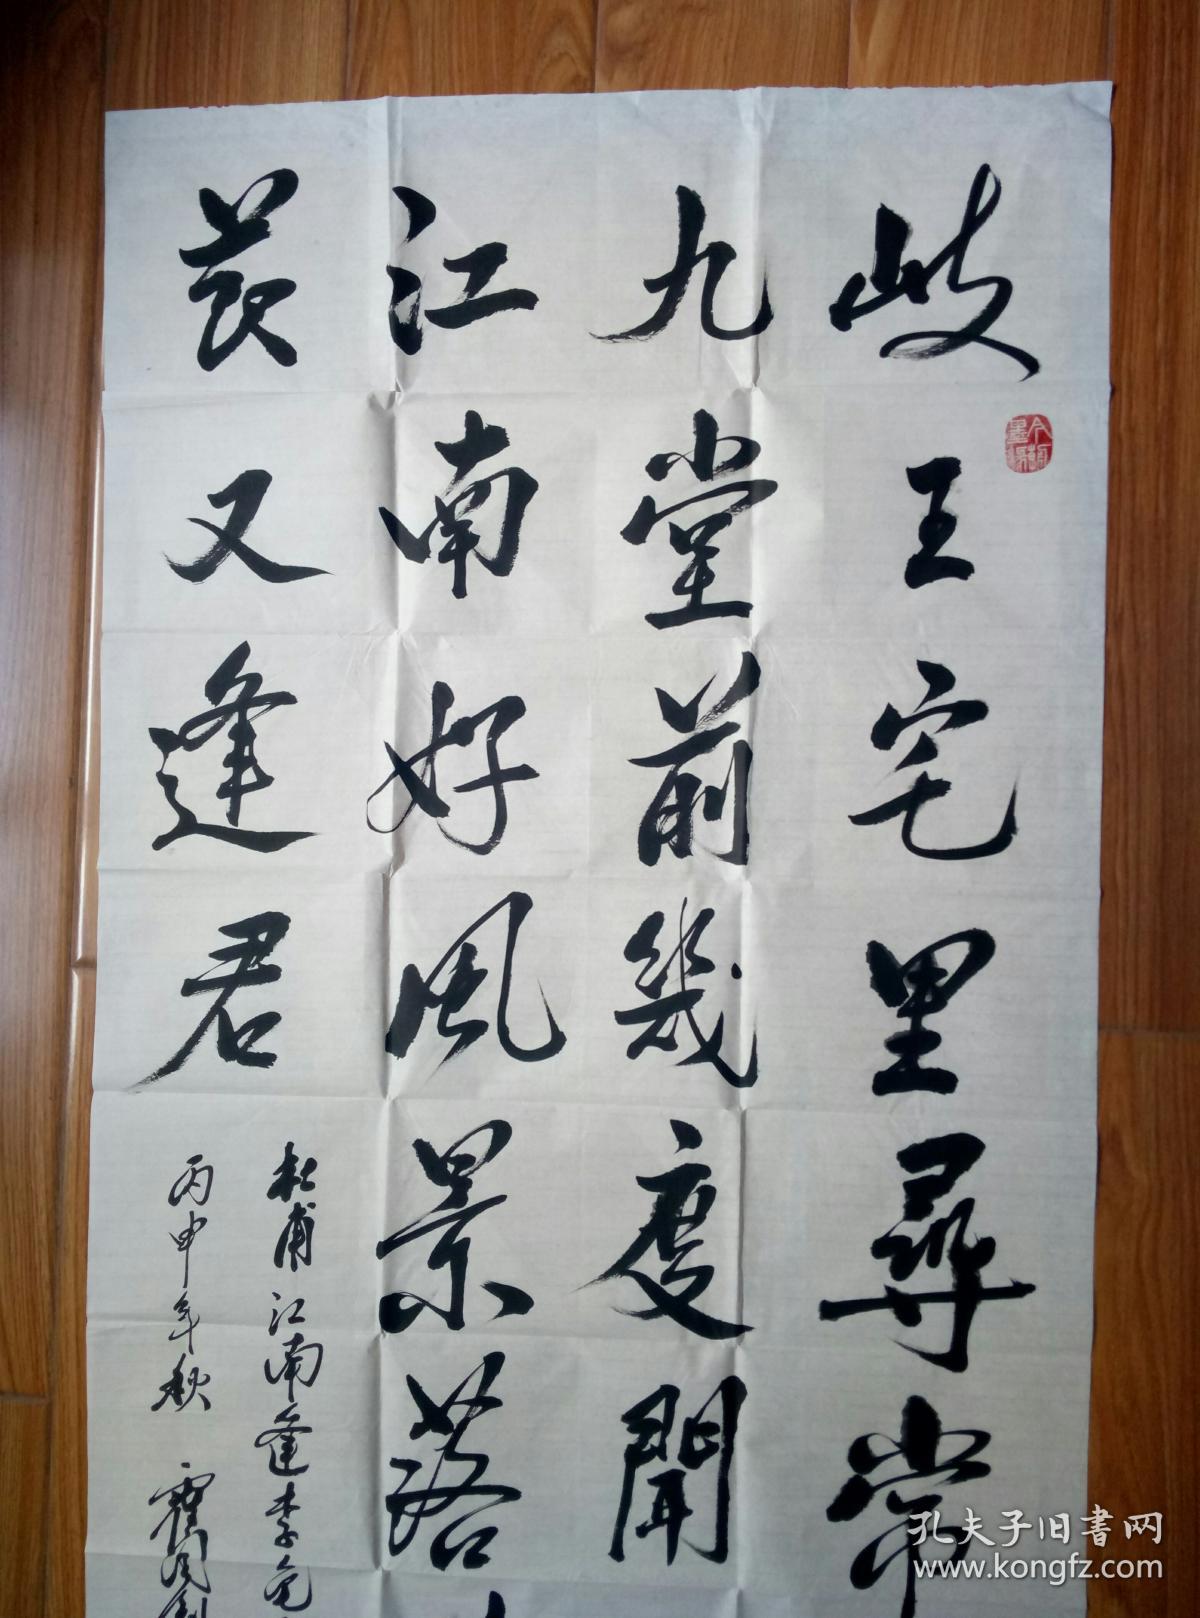 岐王宅里尋常
九堂前幾度聞
江南好風景落
花又逢君
杜甫江南逢李龟
丙申年秋 霍周
孔夫子旧书网
www.kongfz.com